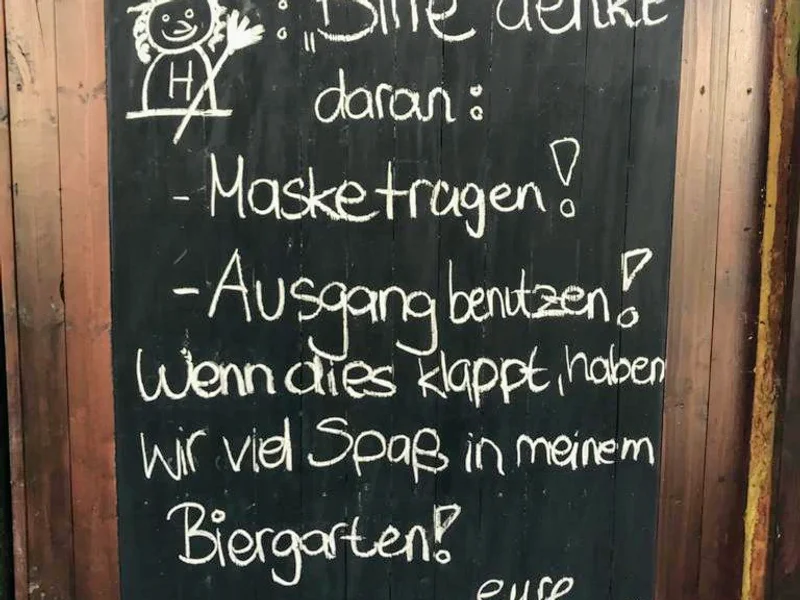 H
: „Bitte denkt
daran:
- Maske tragen!
- Ausgang benutzen!
Wenn dies klappt, haben
wir viel Spaß in meinem
Biergarten!
eure